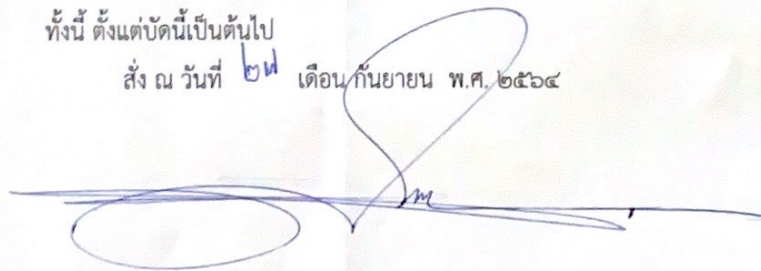 ทั้งนี้ ตั้งแต่บัดนี้เป็นต้นไป
สั่ง ณ วันที่ ๒๗ เดือน กันยายน พ.ศ. ๒๕๖๔